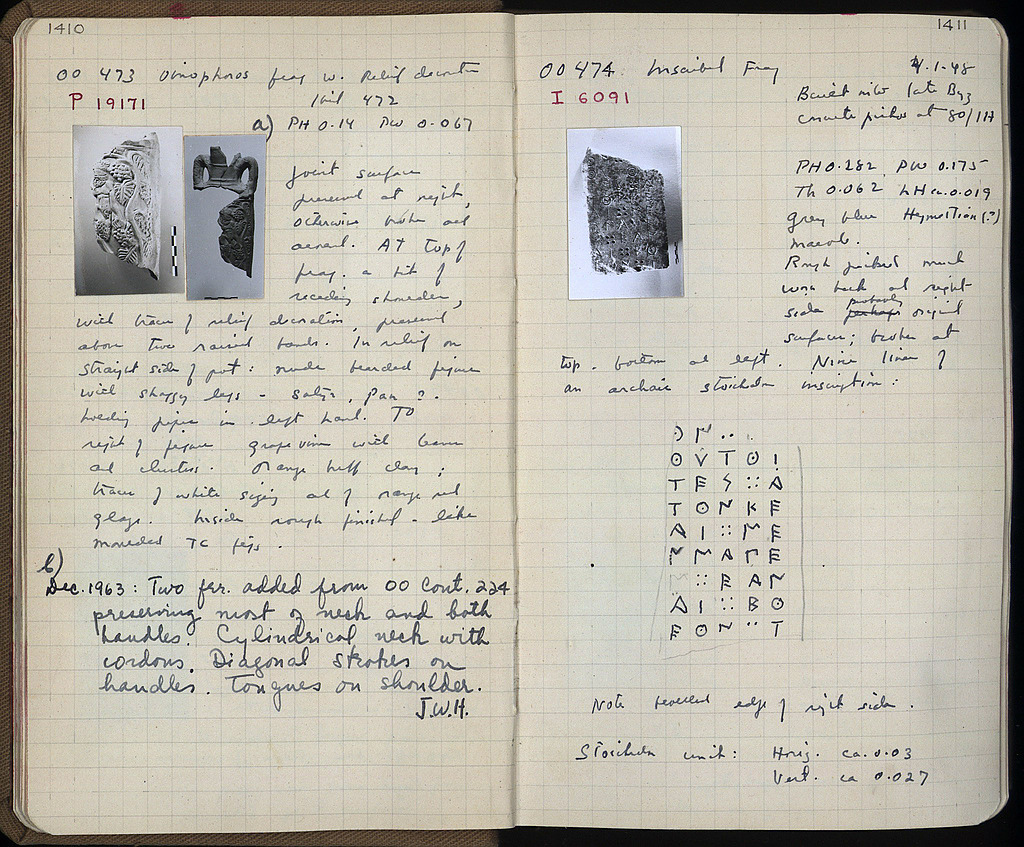 1410
OO 473 Oinophoros frag w. Relief decoration
P 19171
Unit 472
a) PH 0.14 PW 0.067
Joint surface
preserved at right,
otherwise broken all
around. At top of
frag. a bit of
receding shoulder,
with trace of relief decoration, preserved
above two raised bands. In relief on
straight side of pot: nude bearded figure
with shaggy legs - satyr, Pan?
holding pipes in left hand. To
right of figure grape vine with leaves
and clusters. Orange buff clay;
traces of white sizing and of orange red
glaze. Inside rough finished - like
moulded TC figs.
b)
Dec. 1963: Two frr. added from OO Cont. 224
preserving most of neck and both
handles. Cylindrical neck with
cordons. Diagonal strokes on
handles. Tongues on shoulder.
J.W.H.
1411
OO 474 Inscribed Frag
I 6091
4-1-48
Built into late Byz
concrete pithos at 80/ΙΗ
PH 0.282 PW 0.175
Th 0.062 LH ca. 0.019
Gray blue Hymettian (?)
marble.
Rough picked much
worn back and right
side probably perhaps original
surfaces; broken at
top, bottom and left. Nine lines of
an archaic stoichedon inscription:
Ͻ Ν : .
Ο V Τ Ο Ι
Τ Ε S ⁝⁝ Α
Τ Ο Ν Κ Ε
Α Ι ⁝⁝ Μ Ε
Ν Μ Α Γ Ε
Μ ⁝⁝ Ε Α Ν
Α Ι ⁝⁝ Β Ο
Ε Ο Ν ⁝⁝ Τ
Note bevelled edge of right side.
Stoichedon unit: Horiz. ca. 0.03
Vert. ca 0.027